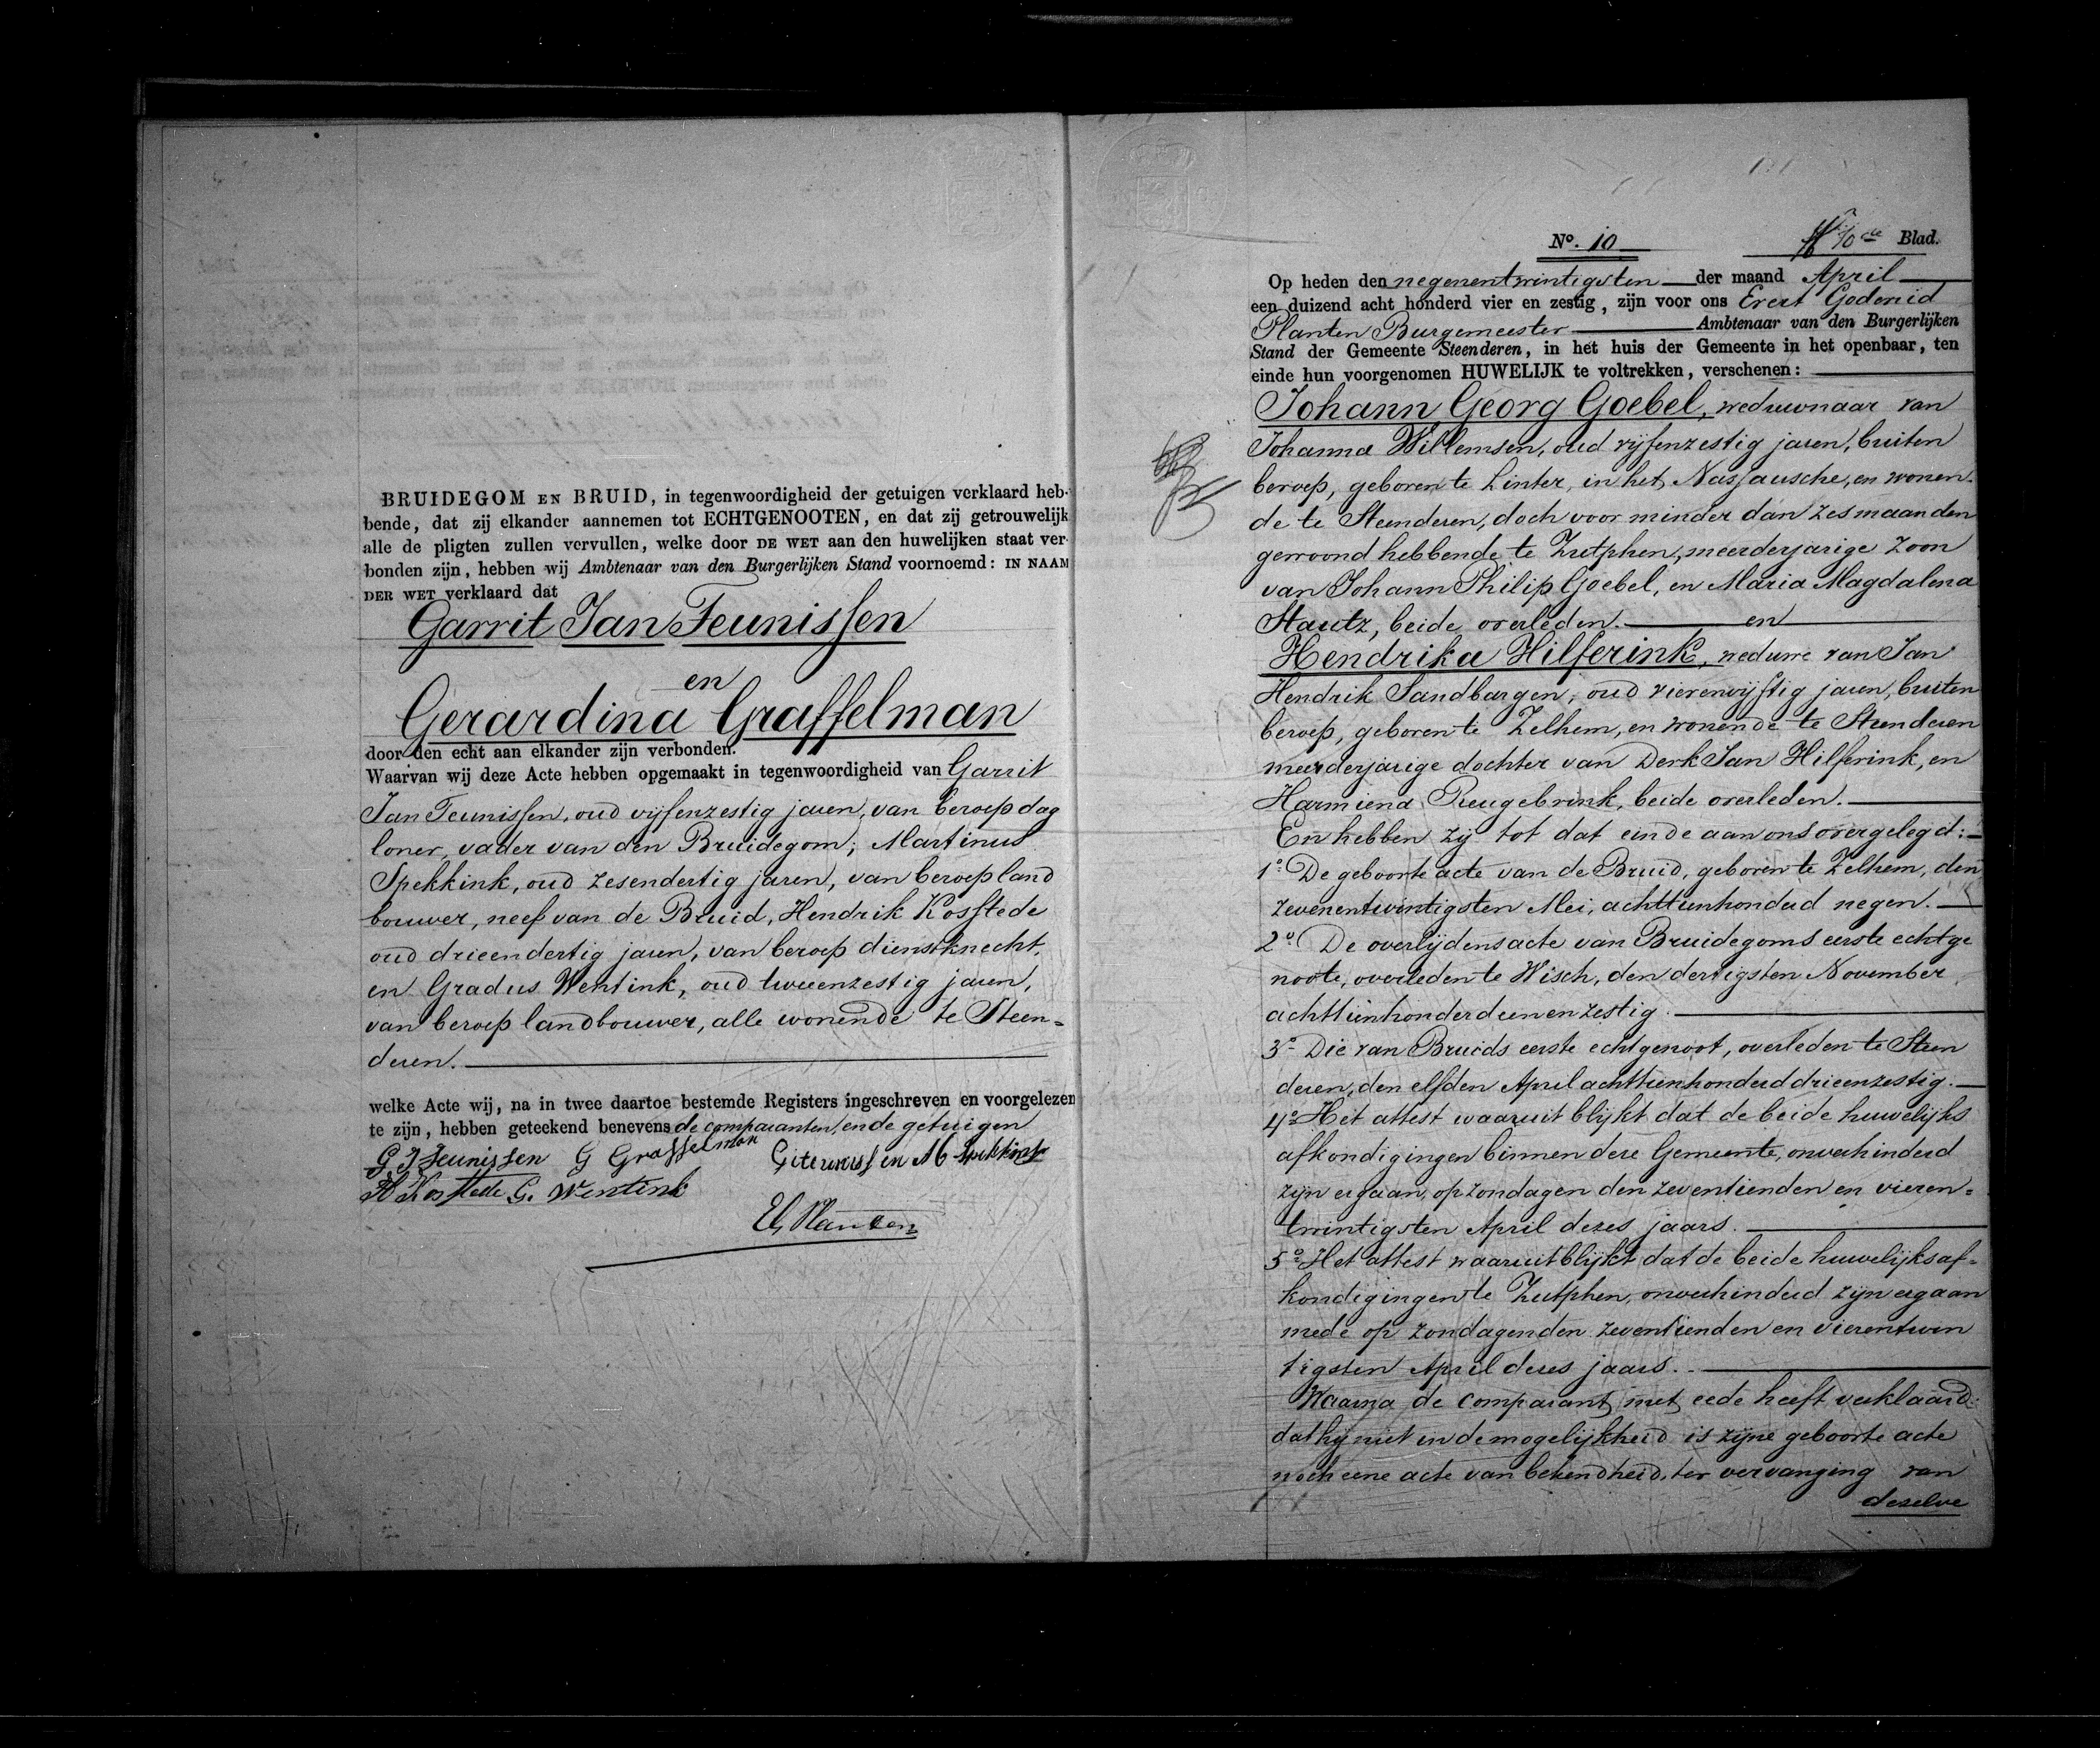 BRUIDEGOM EN BRUID, in tegenwoordigheid der getuigen verklaard heb-
bende, dat zij elkander aannemen tot ECHTGENOOTEN, en dat zij getrouwelijk
alle de pligten zullen vervullen, welke door DE WET aan den huwelijken staat ver-
bonden zijn, hebben wij Ambtenaar van den Burgerlijken Stand voornoemd: IN NAAM
DER WET verklaard dat
Garrit Jan Teunissen
en
Gerardina Graffelman
door den echt aan elkander zijn verbonden.
Waarvan wij deze Acte hebben opgemaakt in tegenwoordigheid van Garrit
Jan Teunissen, oud vijfenzestig jaren, van beroep dag
loner, vader van den Bruidegom; Martinus
Spekkink, oud zesendertig jaren, van beroep land
bouwer, neef van de Bruid, Hendrik Kosstede
oud drieendertig jaren, van beroep dienstknecht,
en Gradus Wentink, oud tweeenzestig jaren,
van beroep landbouwer, alle wonende te Steen=
deren.
welke Acte wij, na in twee daartoe bestemde Registers ingeschreven en voorgelezen
te zijn, hebben geteekend benevens de comparanten, en de getuigen
G J Teunissen G Graffelman M Spekkink
H Kosstede G. Wentink
EG Planten
No. 10 10de Blad.
Op heden den negenentwintigsten der maand April
een duizend acht honderd vier en zestig, zijn voor ons Evert Goderied
Planten Burgemeester Ambtenaar van den Burgerlijken
Stand der Gemeente Steenderen, in het huis der Gemeente in het openbaar, ten
einde hun voorgenomen HUWELIJK te voltrekken, verschenen:
Johann Georg Goebel, weduwnaar van
Johanna Willemsen, oud vijfenzestig jaren, buiten
beroep, geboren te Linter, in het Nassausche, en wonen-
de te Steenderen, doch voor minder dan zes maanden
gewoond hebbende te Zutphen, meerderjarige zoon
van Johann Philip Goebel, en Maria Magdalena
Stautz, beide overleden. en
Hendrika Hilferink, weduwe van Jan
Hendrik Sandbargen, oud vierenvijftig jaren, buiten
beroep, geboren te Zelhem, en wonende te Steenderen
meerderjarige dochter van Derk Jan Hilferink, en
Harmiena Reugebrink, beide overleden.
En hebben zij tot dat einde aan ons overgelegd:
1o. De geboorte acte van de Bruid, geboren te Zelhem, den
zevenentwintigsten Mei, achttienhonderd negen.
2o. De overlijdensacte van Bruidegoms eerste echtge
noote, overleden te Wisch, den dertigsten November
achttienhonderdeenenzestig.
3o. Die van Bruids eerste echtgenoot, overleden te Steen
deren, den elfden April achttienhonderd drieenzestig.
4o. Het attest waaruit blijkt dat de beide huwelijks
afkondigingen binnen deze Gemeente, onverhinderd
zijn ergaan, op zondagen den zeventienden en vieren=
twintigsten April dezes jaars.
5o. Het attest waaruit blijkt dat de beide huwelijksaf=
kondigingen te Zutphen, onverhinderd zijn ergaan
mede op zondagen den zeventienden en vierentwin
tigsten April dezes jaars.
Waarna de comparant met eede heeft verklaard:
dat hij niet in de mogelijkheid is zijne geboorte acte
noch eene acte van bekendheid, ter vervanging van
dezelve